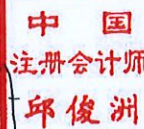 中国
注册会计师
邱俊洲